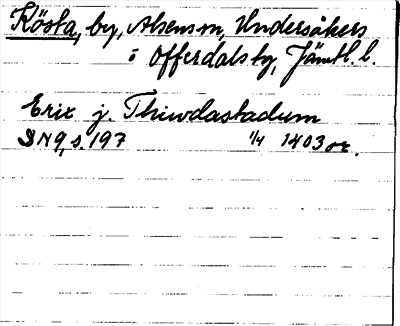 Kösta, by, Alsens sn, Undersåkers
i Offerdals tg, Jämtl. l.
Eric j. Thiwdastadum
SN9, s. 197 1/4 1403 or.